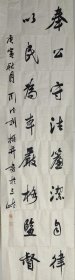 奉公守法廉洁自律
以民為本嚴格監督
庚寅秋月